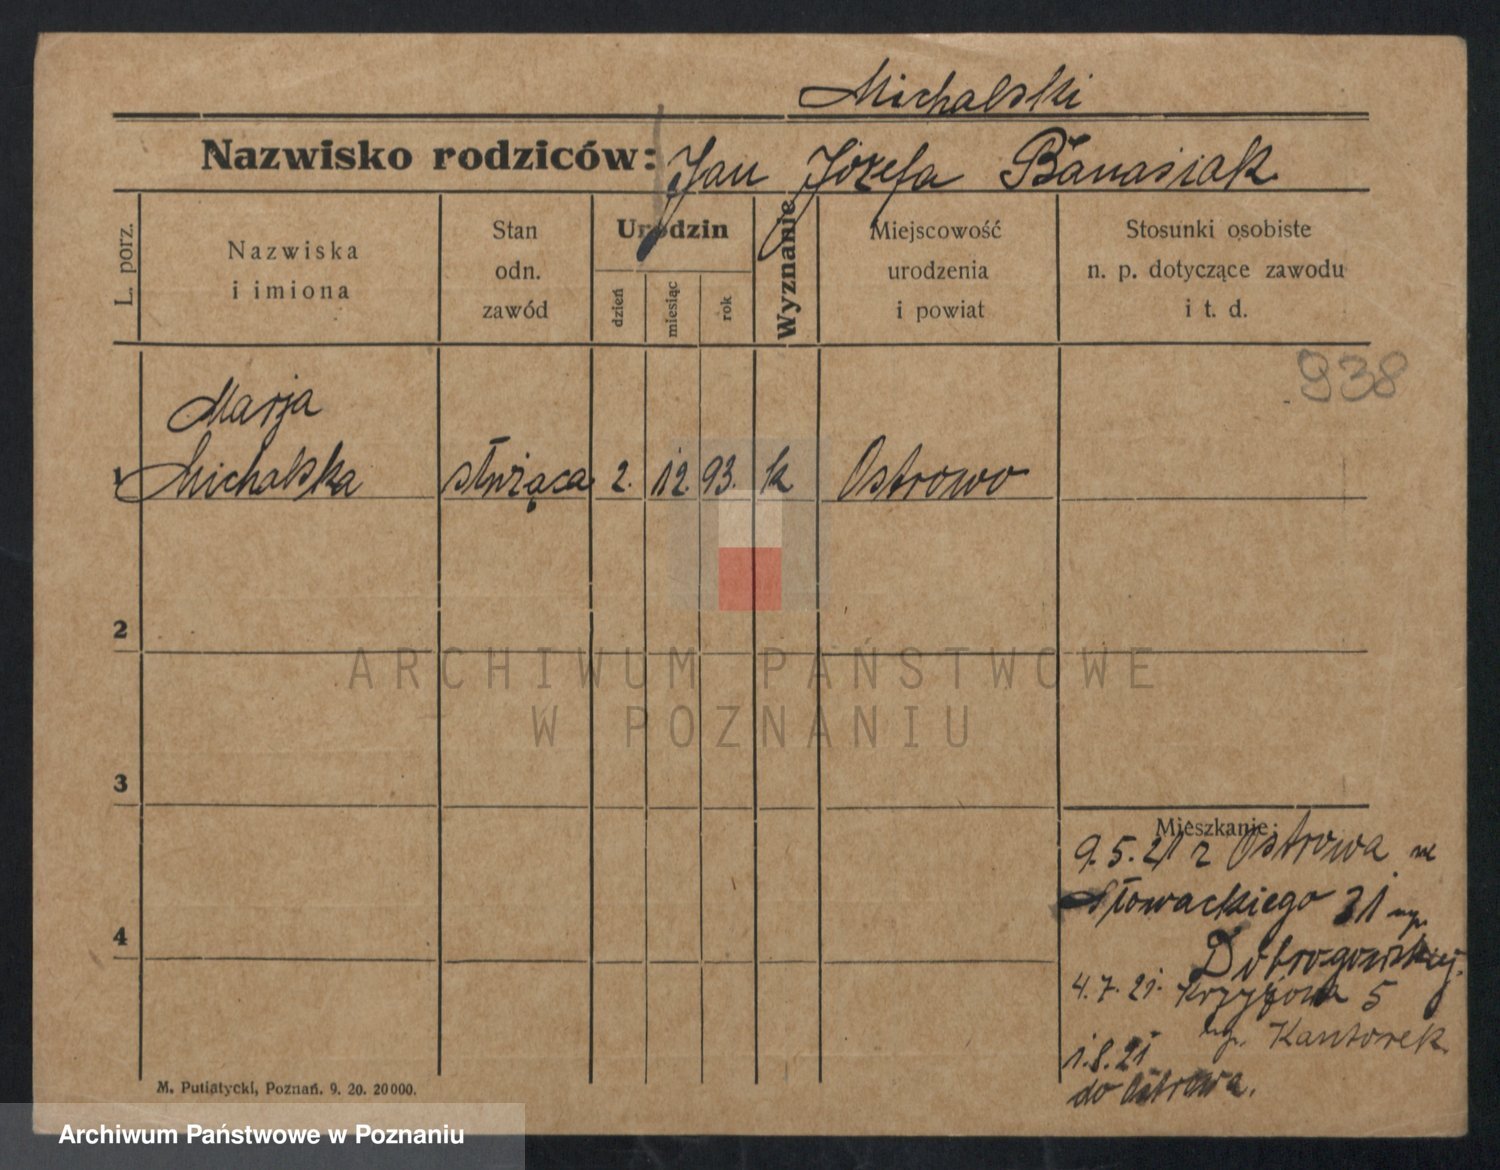 Michalski
Nazwisko rodziców: Jan Józefa Banasiak
L. porz.
Nazwiska
i imiona
Stan
odn.
zawód
Urodzin
dzień
miesiąc
rok
Wyznanie
Miejscowość
urodzenia
i powiat
Stosunki osobiste
n. p. dotyczące zawodu
i t. d.
938
Marja
1 Michalska służąca 2. 12. 93. k Ostrowo
2
3
4
Mieszkanie:
9.5.21 z Ostrowa
Słowackiego 31 np.
Dobrogowskiej.
4.7.21. Krzyżowa 5
np. Kantorek
1.8.21
do Ostrowa.
M. Putiatycki, Poznań. 9. 20. 20000.
ARCHIWUM PAŃSTWOWE
W POZNANIU
Archiwum Państwowe w Poznaniu